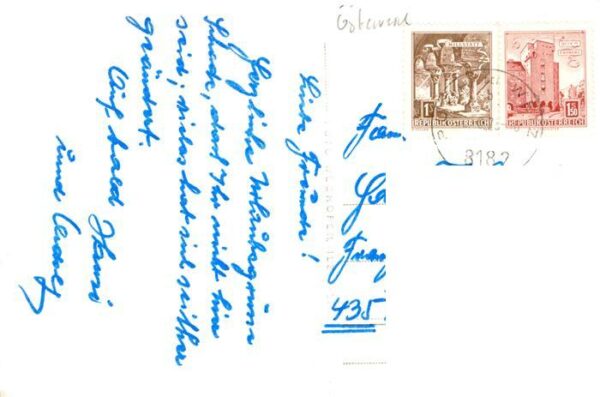 Österreich
MILLSTATT
1S
REPUBLIK ÖSTERREICH
1.50
REPUBLIK ÖSTERREICH
8182
Liebe Freunde!
Herzliche Urlaubsgrüsse
Schade, dass Ihr nicht hier
seid, vieles hat sich seither
geändert.
Auf bald Hansi
und
Fam.
435